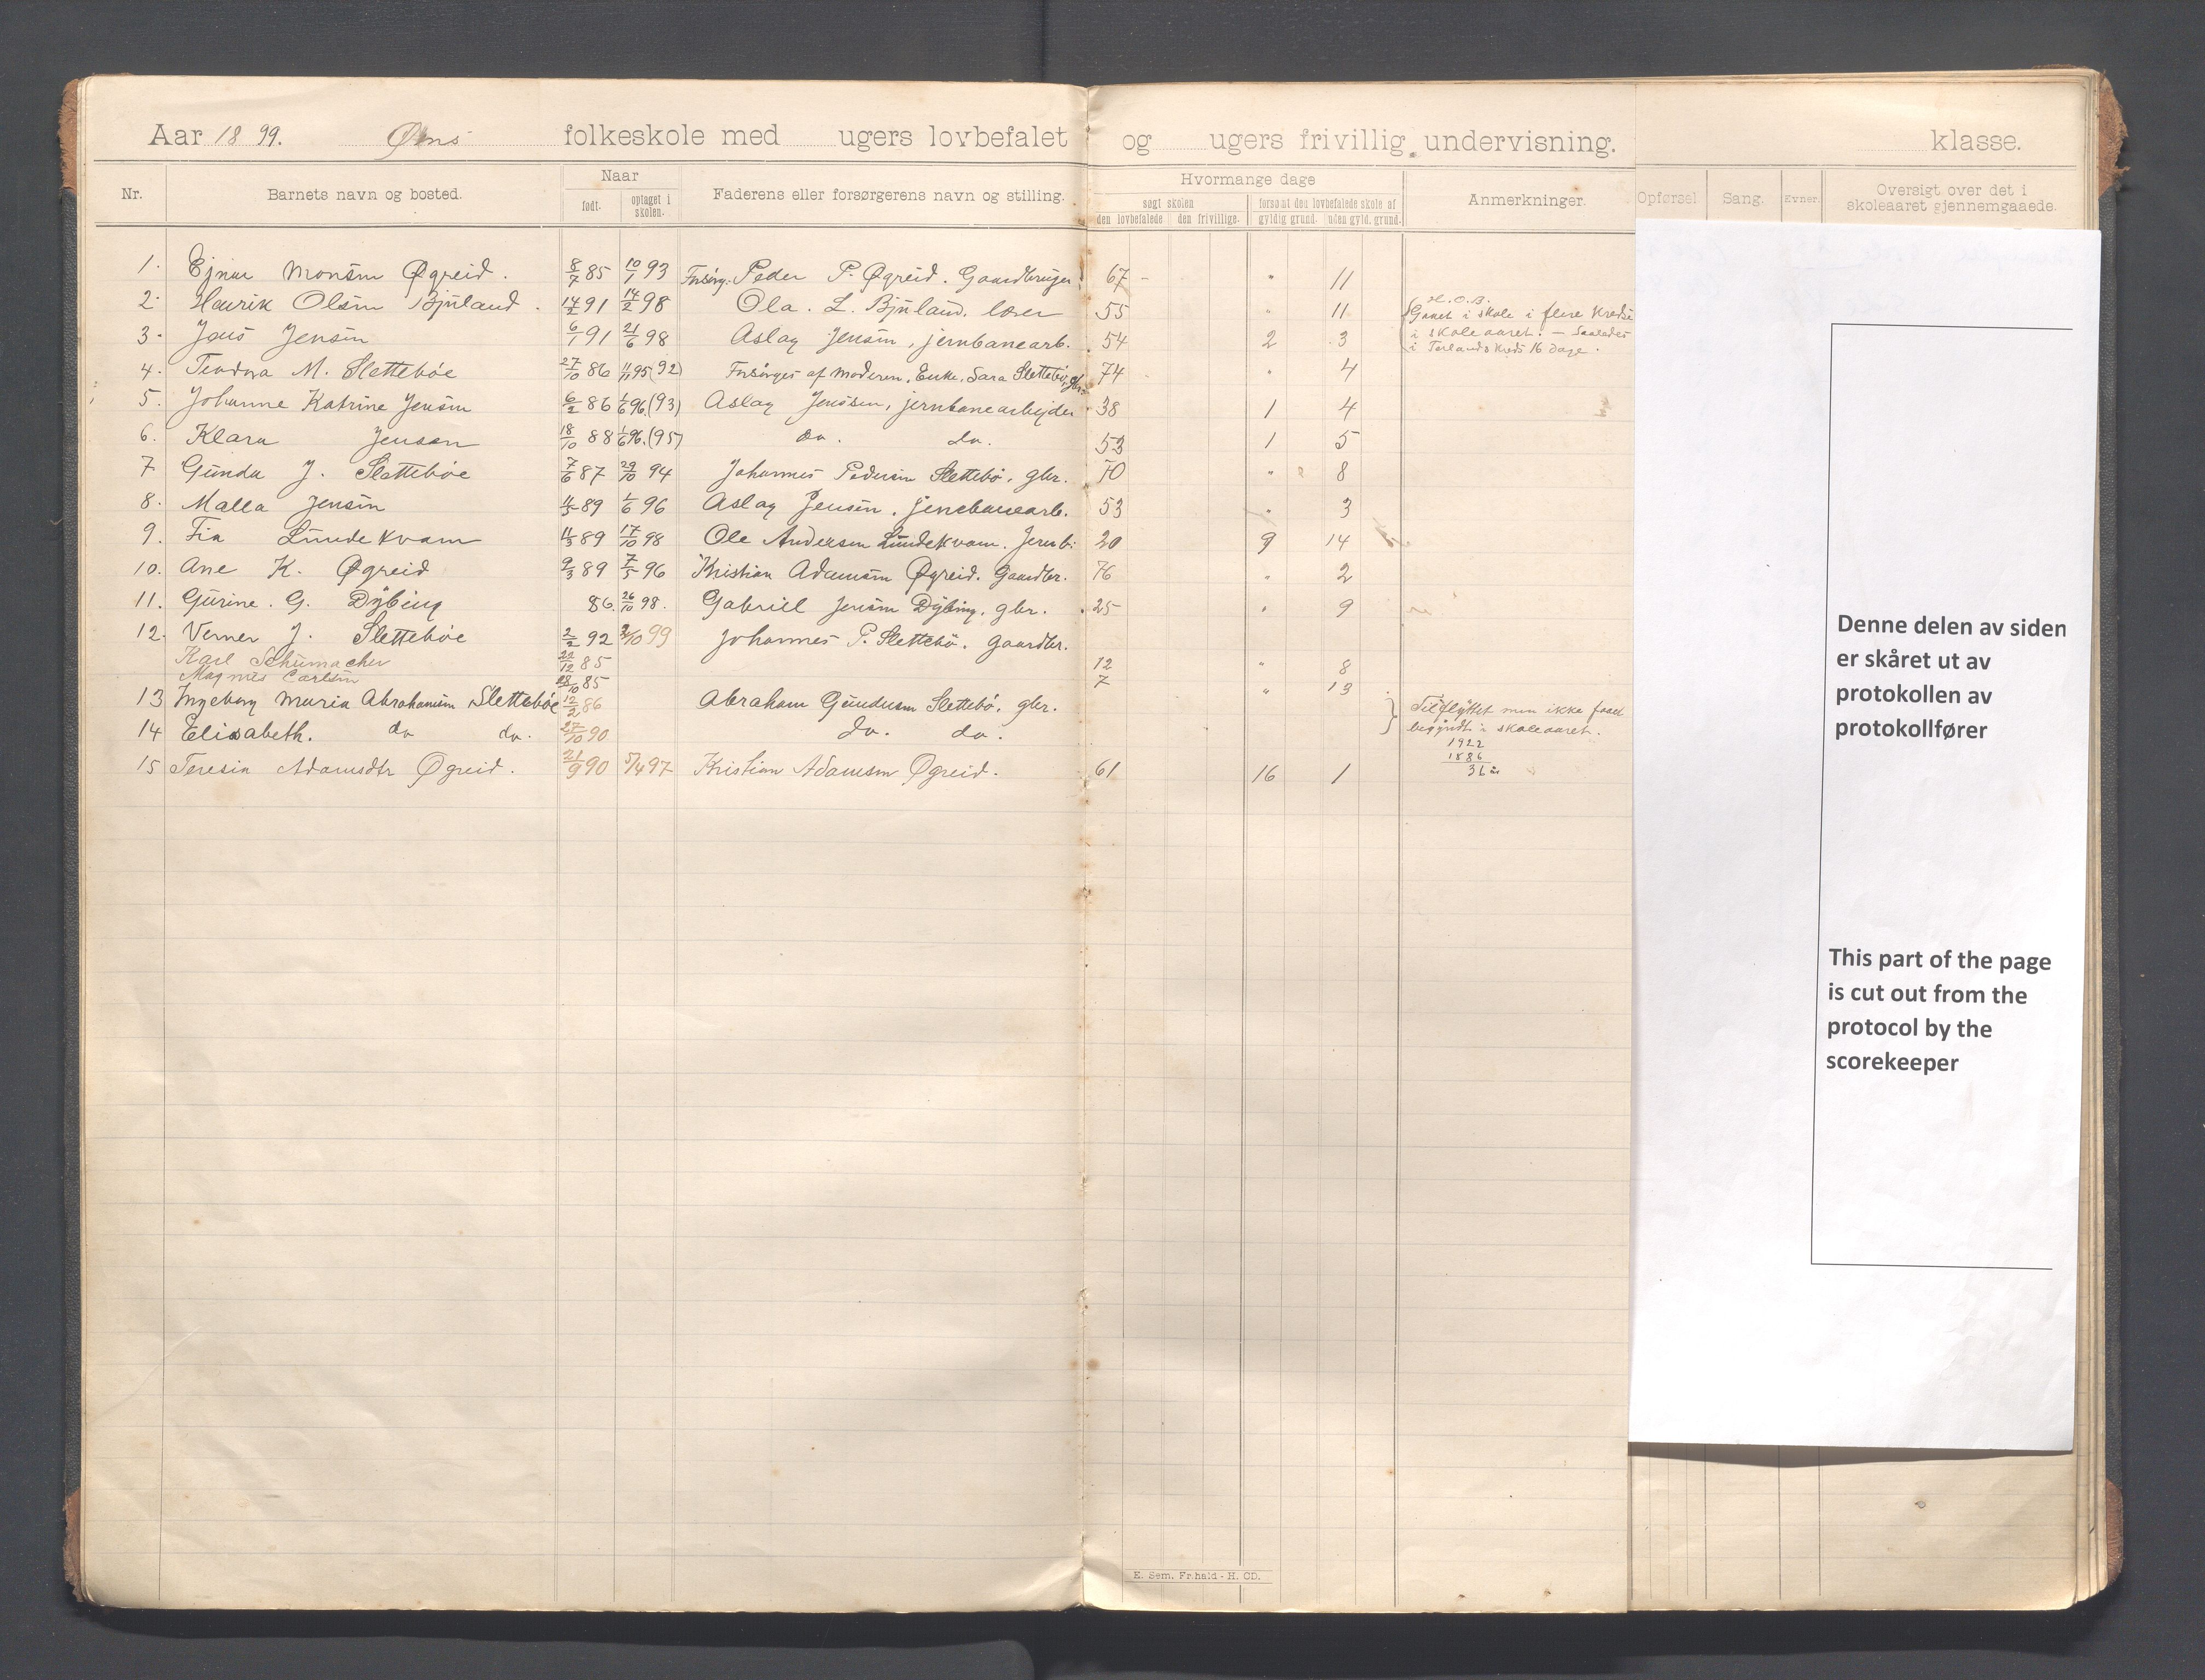 Aar 1899. folkeskole med ugers lovbefalet og ugers frivillig undervisning. klasse.
Nr. Barnets navn og bosted. Naar født. optaget i skolen. Faderens eller forsørgerens navn og stilling. Hvormange dage søgt skolen den lovbefalede den frivillige. forsømt den lovbefalede skole af gyldig grund. uden gyld. grund. Anmerkninger. Opførsel Sang. Evner. Oversigt over det i skoleaaret gjennemgaaede.
1. Ejnar Monsen Øgreid. 8/7 85 10/1 93 Forsörg. Peder P. Øgreid. Gaardbruger 67 " 11
2. Henrik Olsen Bjuland. 14/2 91 14/2 98 Ola. L. Bjuland. lærer 55 " 11
3. Jens Jensen 6/1 91 21/6 98 Aslag Jensen, jernbanearb. 54 2 3
4. Teodora M. Slettebøe 27/10 86 11/11 95 (92) Forsörges af moderen, Enke, Sara Slettebö, gbr. 74 " 4
5. Johanne Katrine Jensen 6/2 86 1/6 96. (93) Aslag Jenssen, jernbanearbejder 38 1 4
6. Klara Jensen 18/10 88 1/6 96. (95) do. do. 53 1 5
7 Gunda J. Slettebøe 7/6 87 29/10 94 Johannes Pedersen Slettebö, gbr. 70 " 8
8. Malla Jensen 4/5 89 1/6 96 Aslag Jensen, jernbanearb. 53 " 3
9. Fia Lundekvam 4/3 89 17/10 98 Ole Andersen Lundekvam. Jernb. 20 9 14
10. Ane K. Øgreid 9/3 89 7/5 96 Kristian Adamsen Øgreid. Gaardbr. 76 " 2
11. Gurine. G. Dybing 86. 26/10 98. Gabriel Jensen Dybing, gbr. 25 " 9
12. Verner J. Slettebøe 2/2 92 /10 99 Johannes P. Slettebö. Gaardbr.
Karl Schumacher 22/12 85 12 " 8
Magnus Carlsen 28/10 85 7 " 13
13 Ingeborg Maria Abrahamsen Slettebøe 12/2 86 Abraham Gundersen Slettebö, gbr.
14 Elisabeth. do do. 27/10 90 do. do.
15 Teresia Adamsdtr Øgreid. 21/9 90 5/4 97 Kristian Adamsen Øgreid. 61 16 1
H. O. B.
Gaaet i skole i flere Kredse
i skoleaaret. — Saaledes
i Terlands Kreds 16 dage.
Tilflyttet men ikke faaet
begyndt i skoleaaret.
1922
1886
36 år
E. Sem. Fr.hald - H. CD.
Denne delen av siden
er skåret ut av
protokollen av
protokollfører
This part of the page
is cut out from the
protocol by the
scorekeeper